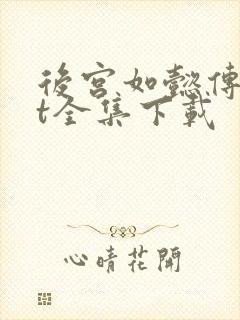 後宮如懿傳
t全集下載
心晴花開